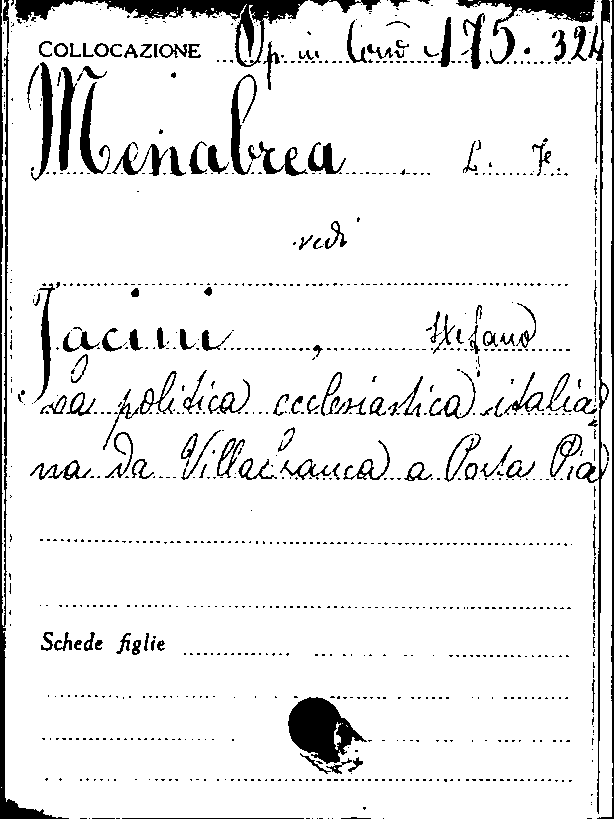 COLLOCAZIONE Op in Cons 175. 324
Menabrea L. Fe.
vedi
Jacini, Stefano
La politica ecclesiastica italia
na da Villafranca a Porta Pia
Schede figlie